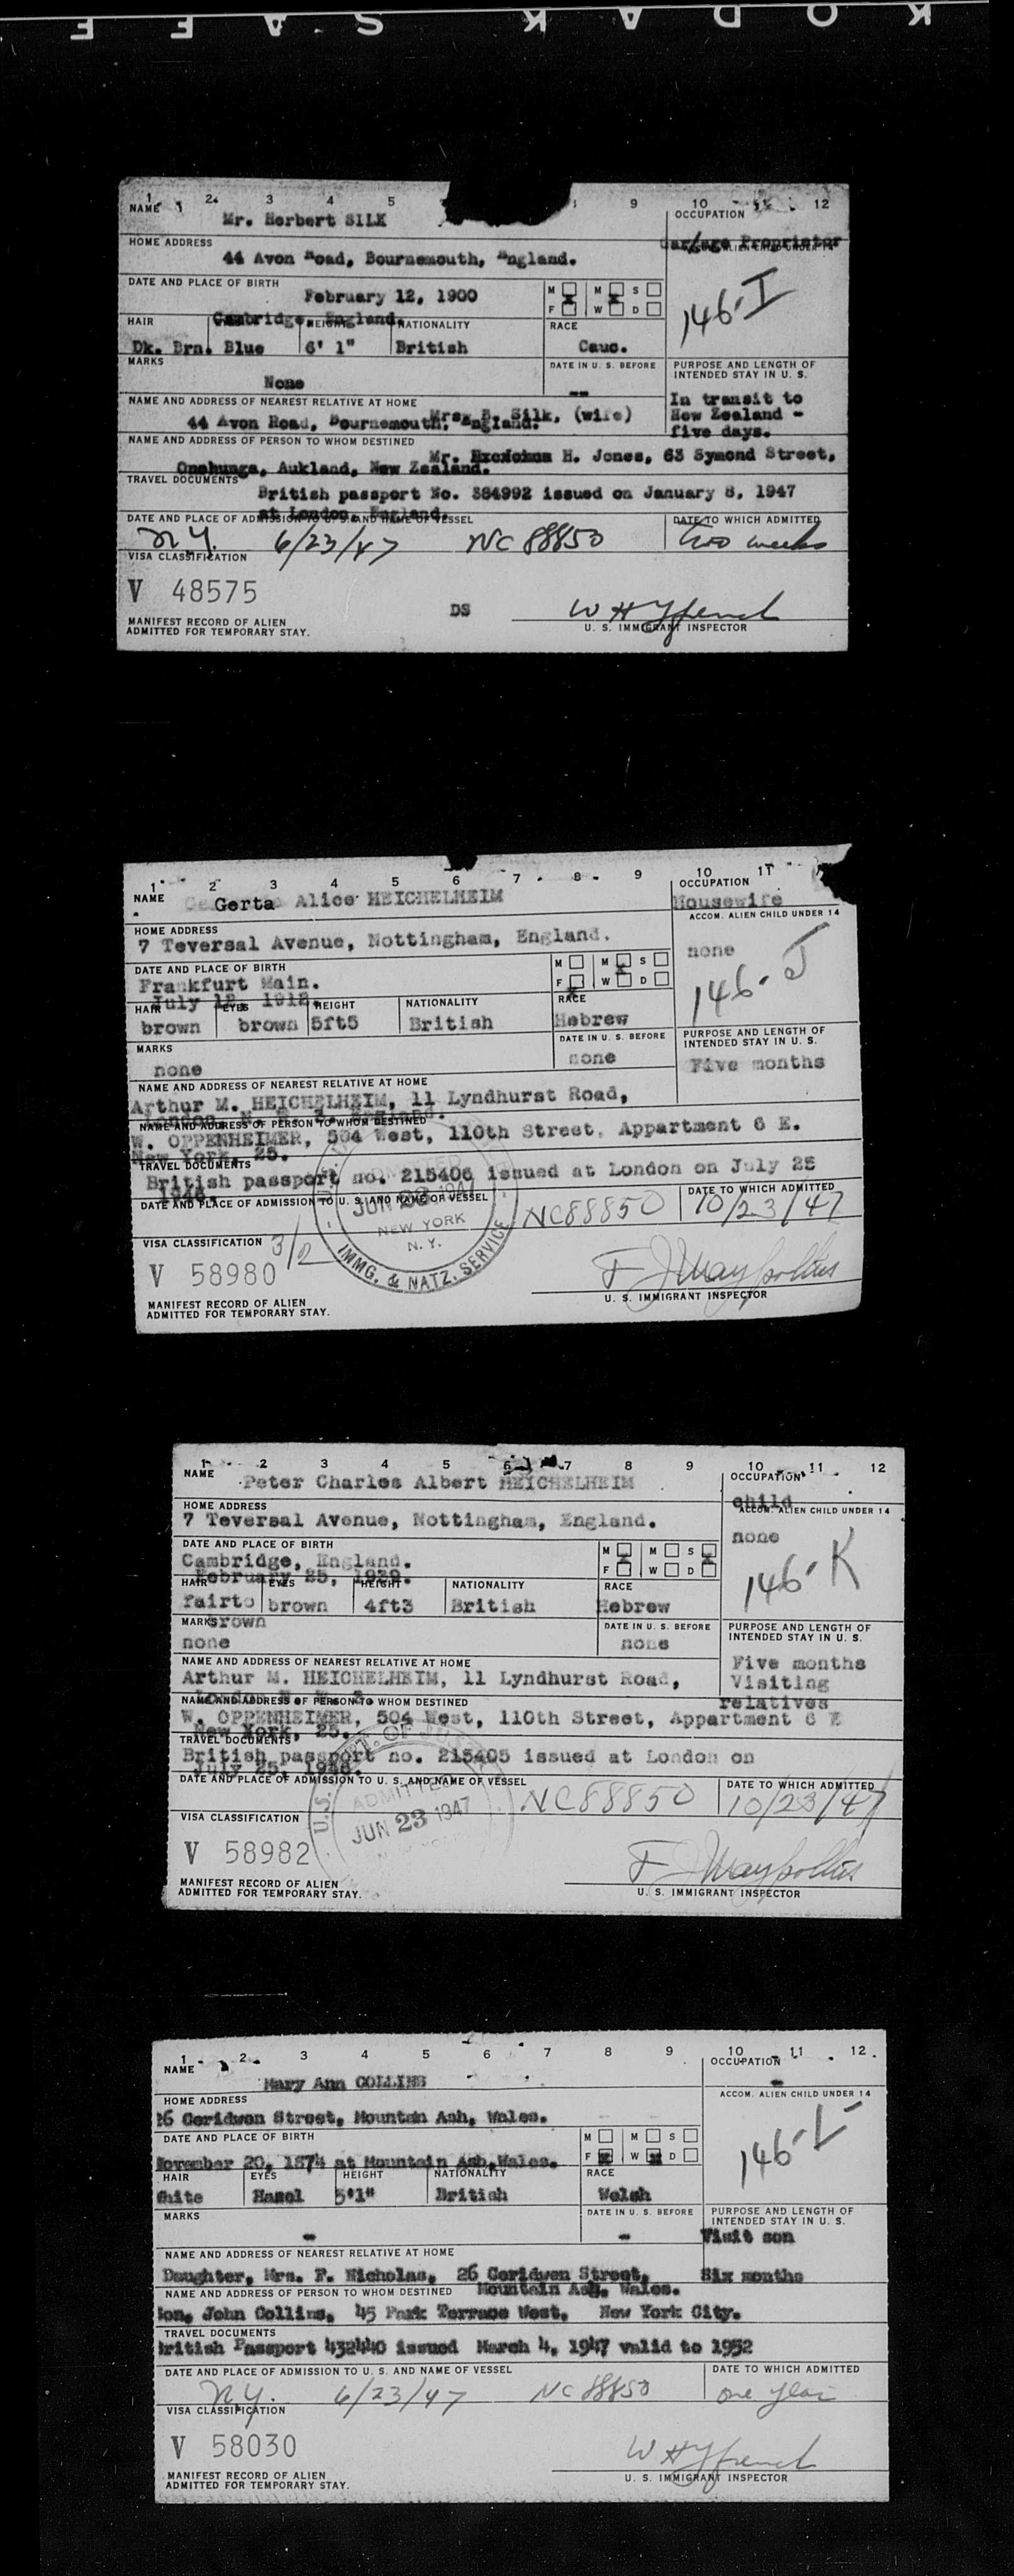 KODAK SAFE
1 2 3 4 5 9 10 11 12
NAME
Mr. Herbert SILK
OCCUPATION
Garage Proprietor
HOME ADDRESS
44 Avon Road, Bournemouth, England.
DATE AND PLACE OF BIRTH
February 12, 1900
Cambridge, England.
M M S
F W D
146-I
HAIR HEIGHT NATIONALITY RACE
Dk. Brn. Blue 6' 1" British Cauc.
MARKS
None
DATE IN U. S. BEFORE
--
PURPOSE AND LENGTH OF
INTENDED STAY IN U. S.
In transit to
New Zealand -
five days.
NAME AND ADDRESS OF NEAREST RELATIVE AT HOME
Mrs. B. Silk, (wife)
44 Avon Road, Bournemouth, England.
NAME AND ADDRESS OF PERSON TO WHOM DESTINED
Mr. H. Jones, 63 Symond Street,
Onehunga, Aukland, New Zealand.
TRAVEL DOCUMENTS
British passport No. 384992 issued on January 8, 1947
at London, England.
DATE AND PLACE OF ADMISSION TO U. S. AND NAME OF VESSEL
N.Y. 6/23/47 NC 88850
DATE TO WHICH ADMITTED
two weeks
VISA CLASSIFICATION
V 48575
DS
U. S. IMMIGRANT INSPECTOR
MANIFEST RECORD OF ALIEN
ADMITTED FOR TEMPORARY STAY.
1 2 3 4 5 6 7 8 9 10 11
NAME
Gerta Alice HEICHELHEIM
OCCUPATION
Housewife
ACCOM. ALIEN CHILD UNDER 14
none
146-J
HOME ADDRESS
7 Teversal Avenue, Nottingham, England.
DATE AND PLACE OF BIRTH
Frankfurt Main.
July 12, 1912.
M M S
F W D
HAIR EYES HEIGHT NATIONALITY RACE
brown brown 5ft5 British Hebrew
MARKS
none
DATE IN U. S. BEFORE
none
PURPOSE AND LENGTH OF
INTENDED STAY IN U. S.
Five months
NAME AND ADDRESS OF NEAREST RELATIVE AT HOME
Arthur M. HEICHELHEIM, 11 Lyndhurst Road,
London, England.
NAME AND ADDRESS OF PERSON TO WHOM DESTINED
W. OPPENHEIMER, 504 West, 110th Street, Appartment 6 E.
New York, 25.
TRAVEL DOCUMENTS
British passport no. 215406 issued at London on July 25
1946.
DATE AND PLACE OF ADMISSION TO U. S. AND NAME OF VESSEL
NC88850
DATE TO WHICH ADMITTED
10/23/47
ADMITTED
JUN 23 1947
NEW YORK
N. Y.
IMMG. & NATZ. SERVICE
VISA CLASSIFICATION 3/2
V 58980
U. S. IMMIGRANT INSPECTOR
MANIFEST RECORD OF ALIEN
ADMITTED FOR TEMPORARY STAY.
1 2 3 4 5 6 7 8 9 10 11 12
NAME
Peter Charles Albert HEICHELHEIM
OCCUPATION
child
ACCOM. ALIEN CHILD UNDER 14
none
146-K
HOME ADDRESS
7 Teversal Avenue, Nottingham, England.
DATE AND PLACE OF BIRTH
Cambridge, England.
February 25, 1939.
M M S
F W D
HAIR EYES HEIGHT NATIONALITY RACE
fairto brown 4ft3 British Hebrew
brown
MARKS
none
DATE IN U. S. BEFORE
none
PURPOSE AND LENGTH OF
INTENDED STAY IN U. S.
Five months
Visiting
relatives
NAME AND ADDRESS OF NEAREST RELATIVE AT HOME
Arthur M. HEICHELHEIM, 11 Lyndhurst Road,
NAME AND ADDRESS OF PERSON TO WHOM DESTINED
W. OPPENHEIMER, 504 West, 110th Street, Appartment 6 E
New York, 25.
TRAVEL DOCUMENTS
British passport no. 215405 issued at London on
July 25, 1946.
DATE AND PLACE OF ADMISSION TO U. S. AND NAME OF VESSEL
NC88850
DATE TO WHICH ADMITTED
10/23/47
ADMITTED
JUN 23 1947
VISA CLASSIFICATION
V 58982
U. S. IMMIGRANT INSPECTOR
MANIFEST RECORD OF ALIEN
ADMITTED FOR TEMPORARY STAY.
1 2 3 4 5 6 7 8 9 10 11 12
NAME
Mary Ann COLLINS
OCCUPATION
-
ACCOM. ALIEN CHILD UNDER 14
146-L
HOME ADDRESS
26 Ceridwen Street, Mountan Ash, Wales.
DATE AND PLACE OF BIRTH
November 20, 1874 at Mountain Ash, Wales.
M M S
F W D
HAIR EYES HEIGHT NATIONALITY RACE
White Hazel 5'1" British Welsh
MARKS
-
DATE IN U. S. BEFORE
-
PURPOSE AND LENGTH OF
INTENDED STAY IN U. S.
Visit son
Six months
NAME AND ADDRESS OF NEAREST RELATIVE AT HOME
Daughter, Mrs. F. Nicholas, 26 Ceridwen Street,
Mountain Ash, Wales.
NAME AND ADDRESS OF PERSON TO WHOM DESTINED
Son, John Collins, 45 Park Terrace West, New York City.
TRAVEL DOCUMENTS
British Passport 432440 issued March 4, 1947 valid to 1952
DATE AND PLACE OF ADMISSION TO U. S. AND NAME OF VESSEL
N.Y. 6/23/47 NC 88850
DATE TO WHICH ADMITTED
one year
VISA CLASSIFICATION
V 58030
U. S. IMMIGRANT INSPECTOR
MANIFEST RECORD OF ALIEN
ADMITTED FOR TEMPORARY STAY.